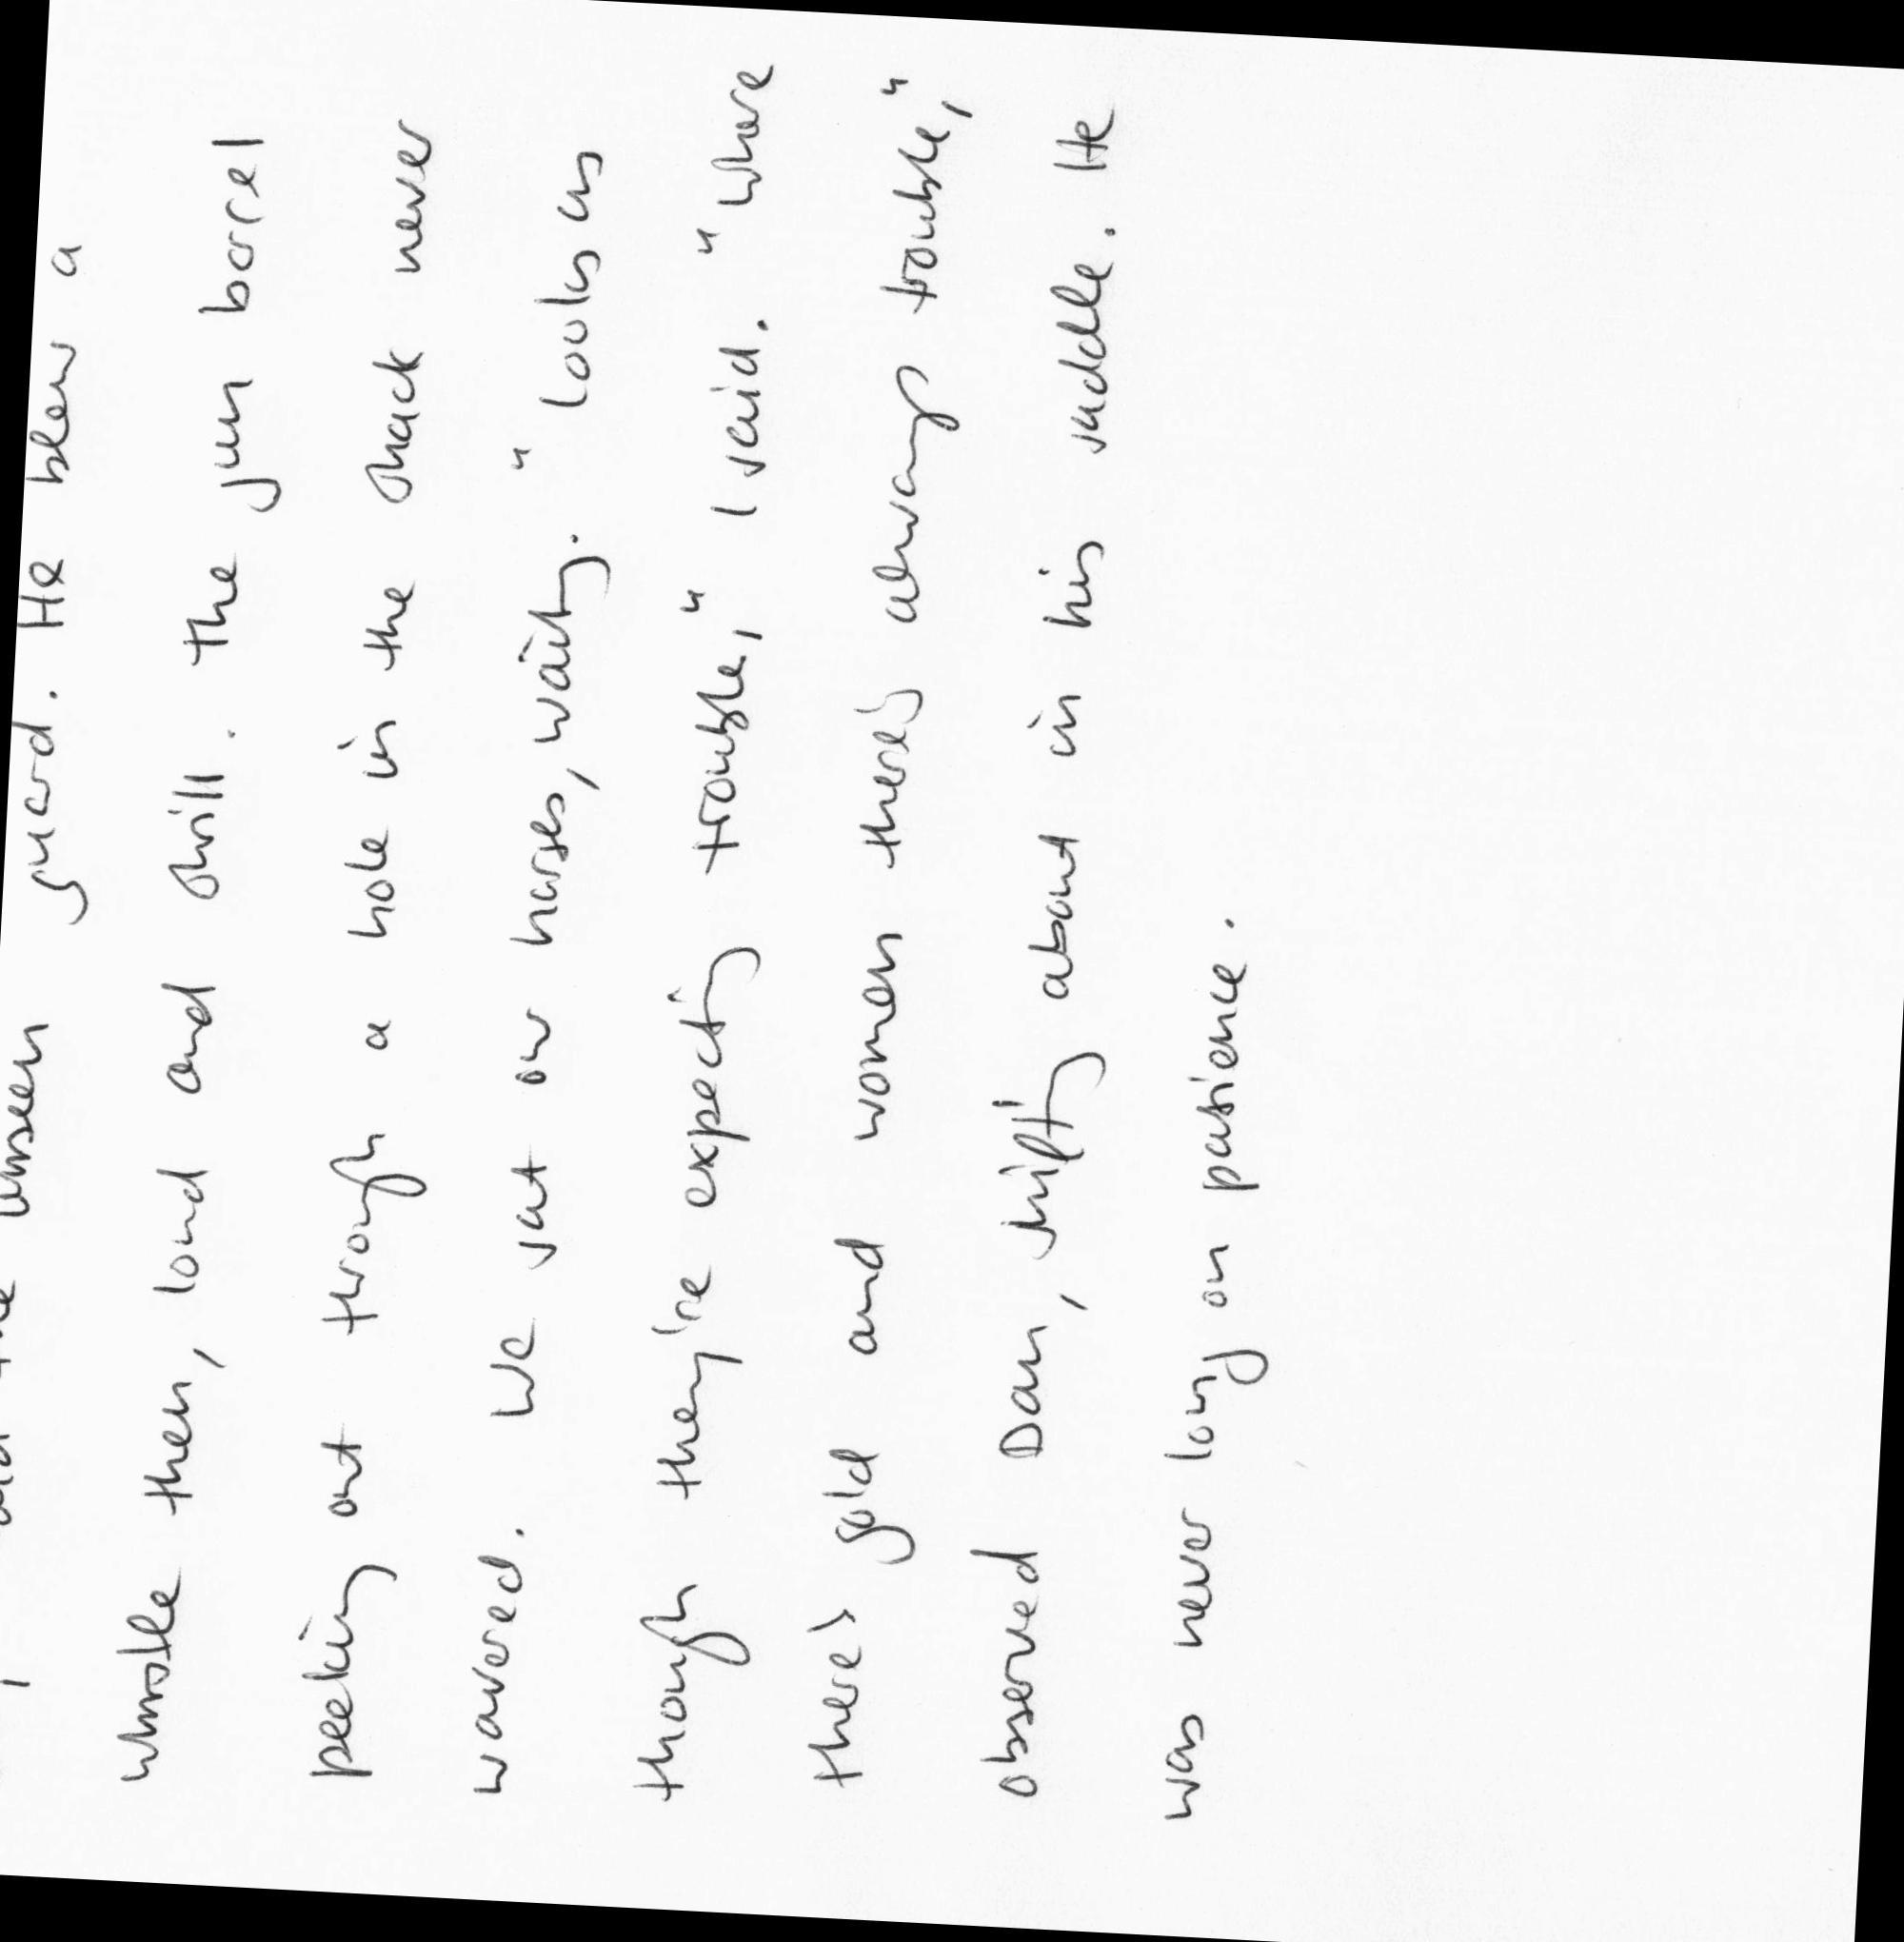 said the unseen guard. He blew a
whistle then, loud and shrill. The gun barrel
peeking out through a hole in the shack never
wavered. We sat our horses, waiting. "Looks as
though they're expecting trouble," I said. "Where
there's gold and women there's always trouble,"
observed Dan, shifting about in his saddle. He
was never long on patience.